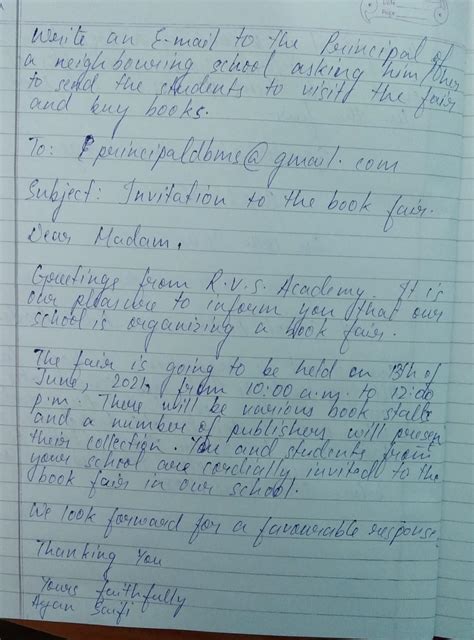 Write an E-mail to the Principal of
a neighbouring school asking him/her
to send the students to visit the fair
and buy books.
To: principaldbms@gmail.com
Subject: Invitation to the book fair.
Dear Madam,
Greetings from R.V.S. Academy. It is
our pleasure to inform you that our
school is organizing a book fair.
The fair is going to be held on 13th of
June, 2021, from 10:00 a.m. to 12:00
p.m. There will be various book stalls
and a number of publishers will presen
their collection. You and students from
your school are cordially invited to the
book fair in our school.
We look forward for a favourable response.
Thanking You
Yours faithfully
Ayan